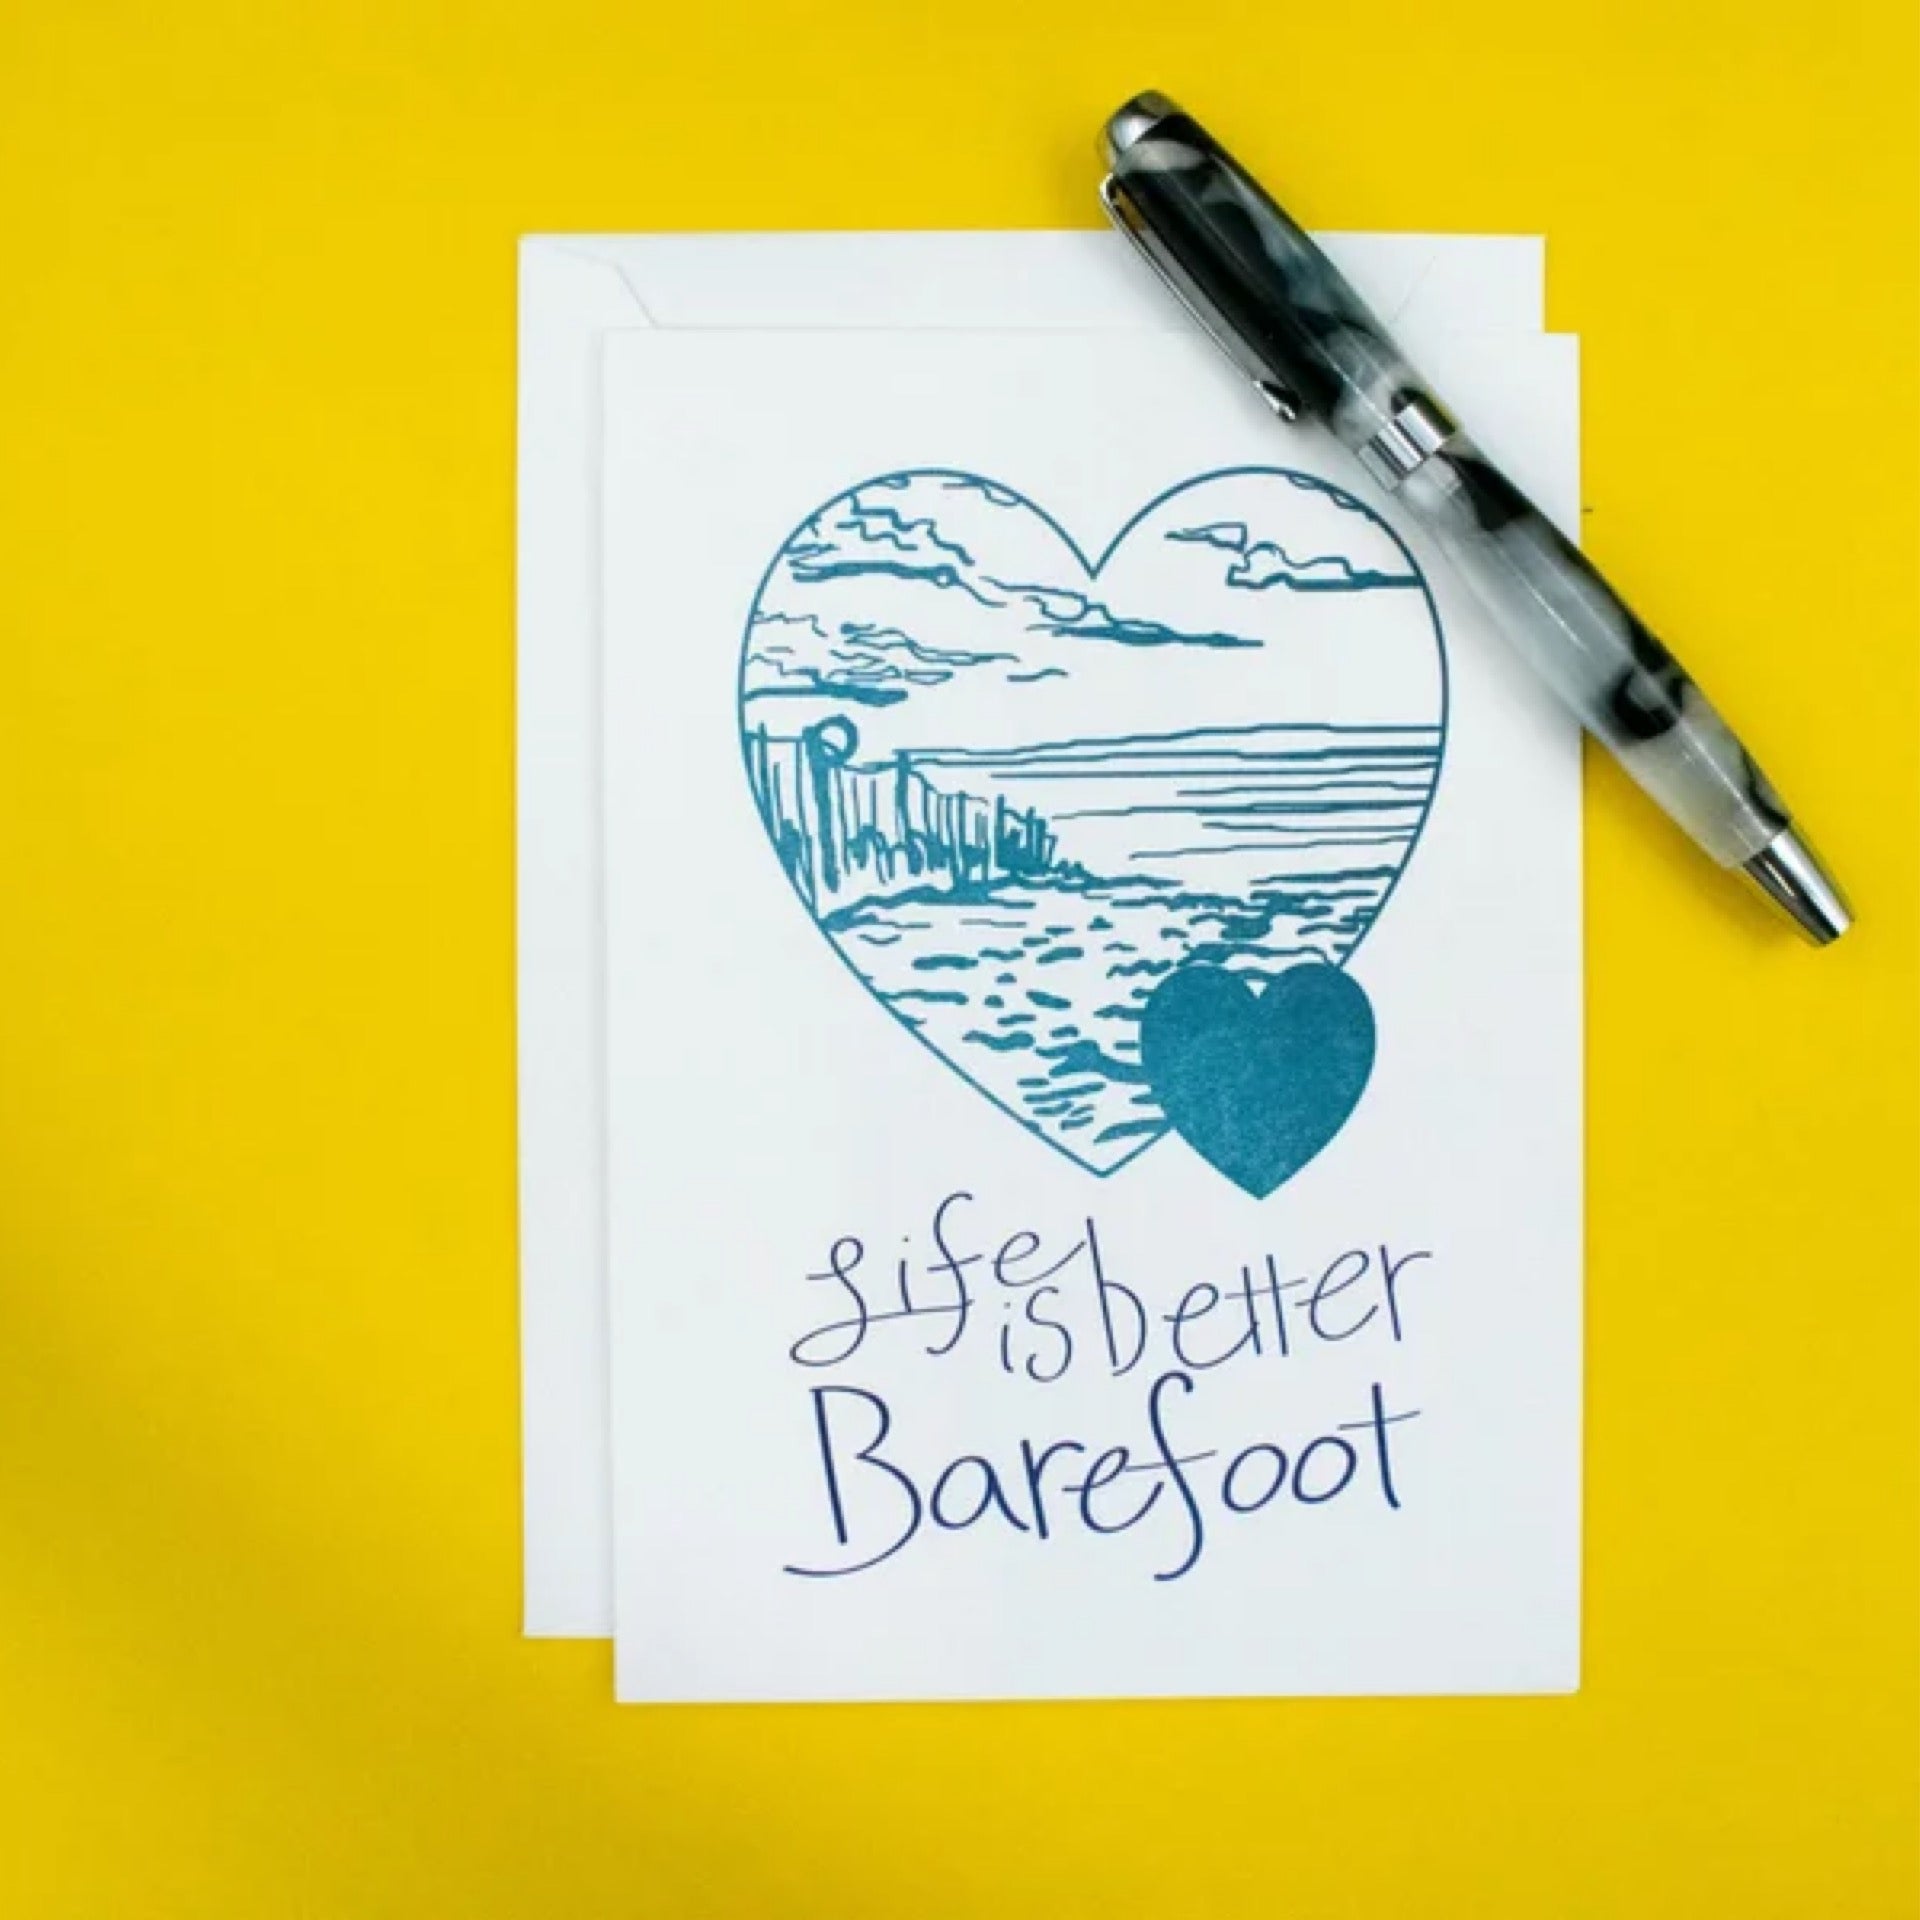 Life is better
Barefoot